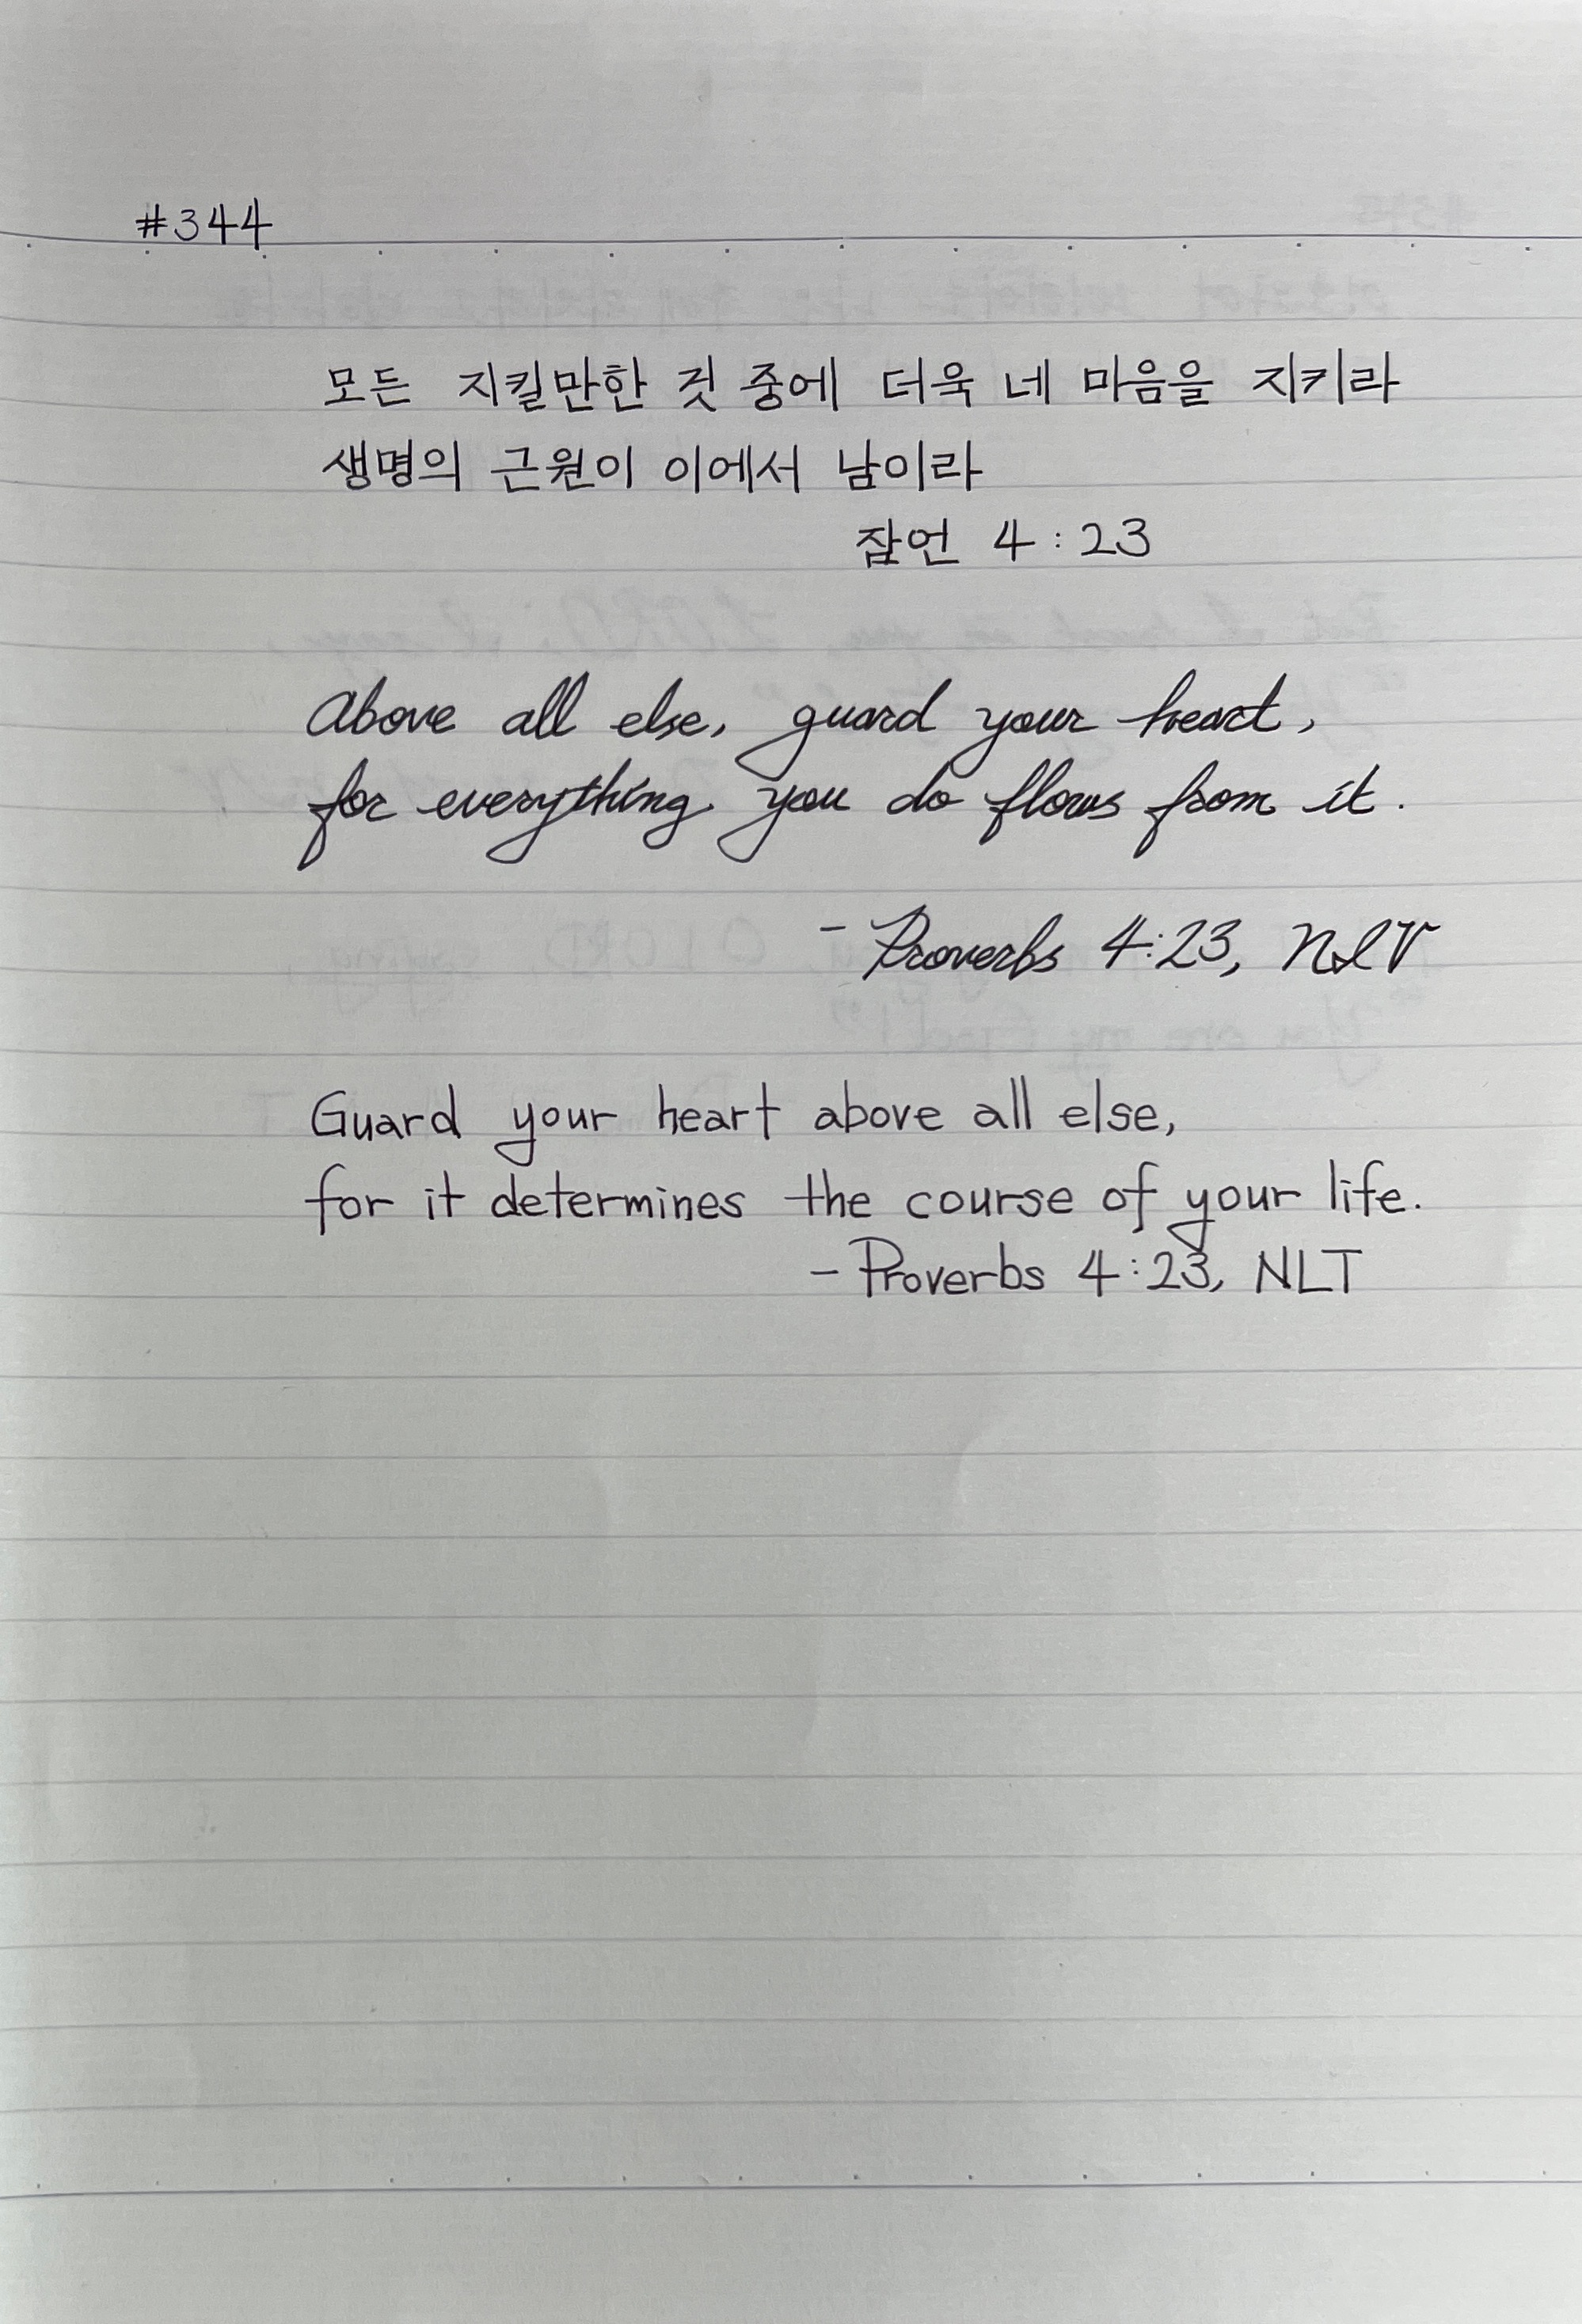 #344
모든 지킬만한 것 중에 더욱 네 마음을 지키라
생명의 근원이 이에서 남이라
잠언 4:23
Above all else, guard your heart,
for everything you do flows from it.
- Proverbs 4:23, NIV
Guard your heart above all else,
for it determines the course of your life.
- Proverbs 4:23, NLT